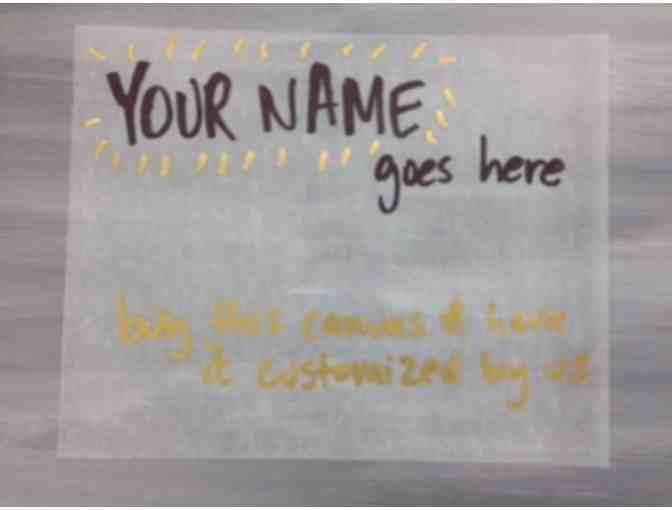 YOUR NAME
goes here
buy this canvas & have
it customized by us